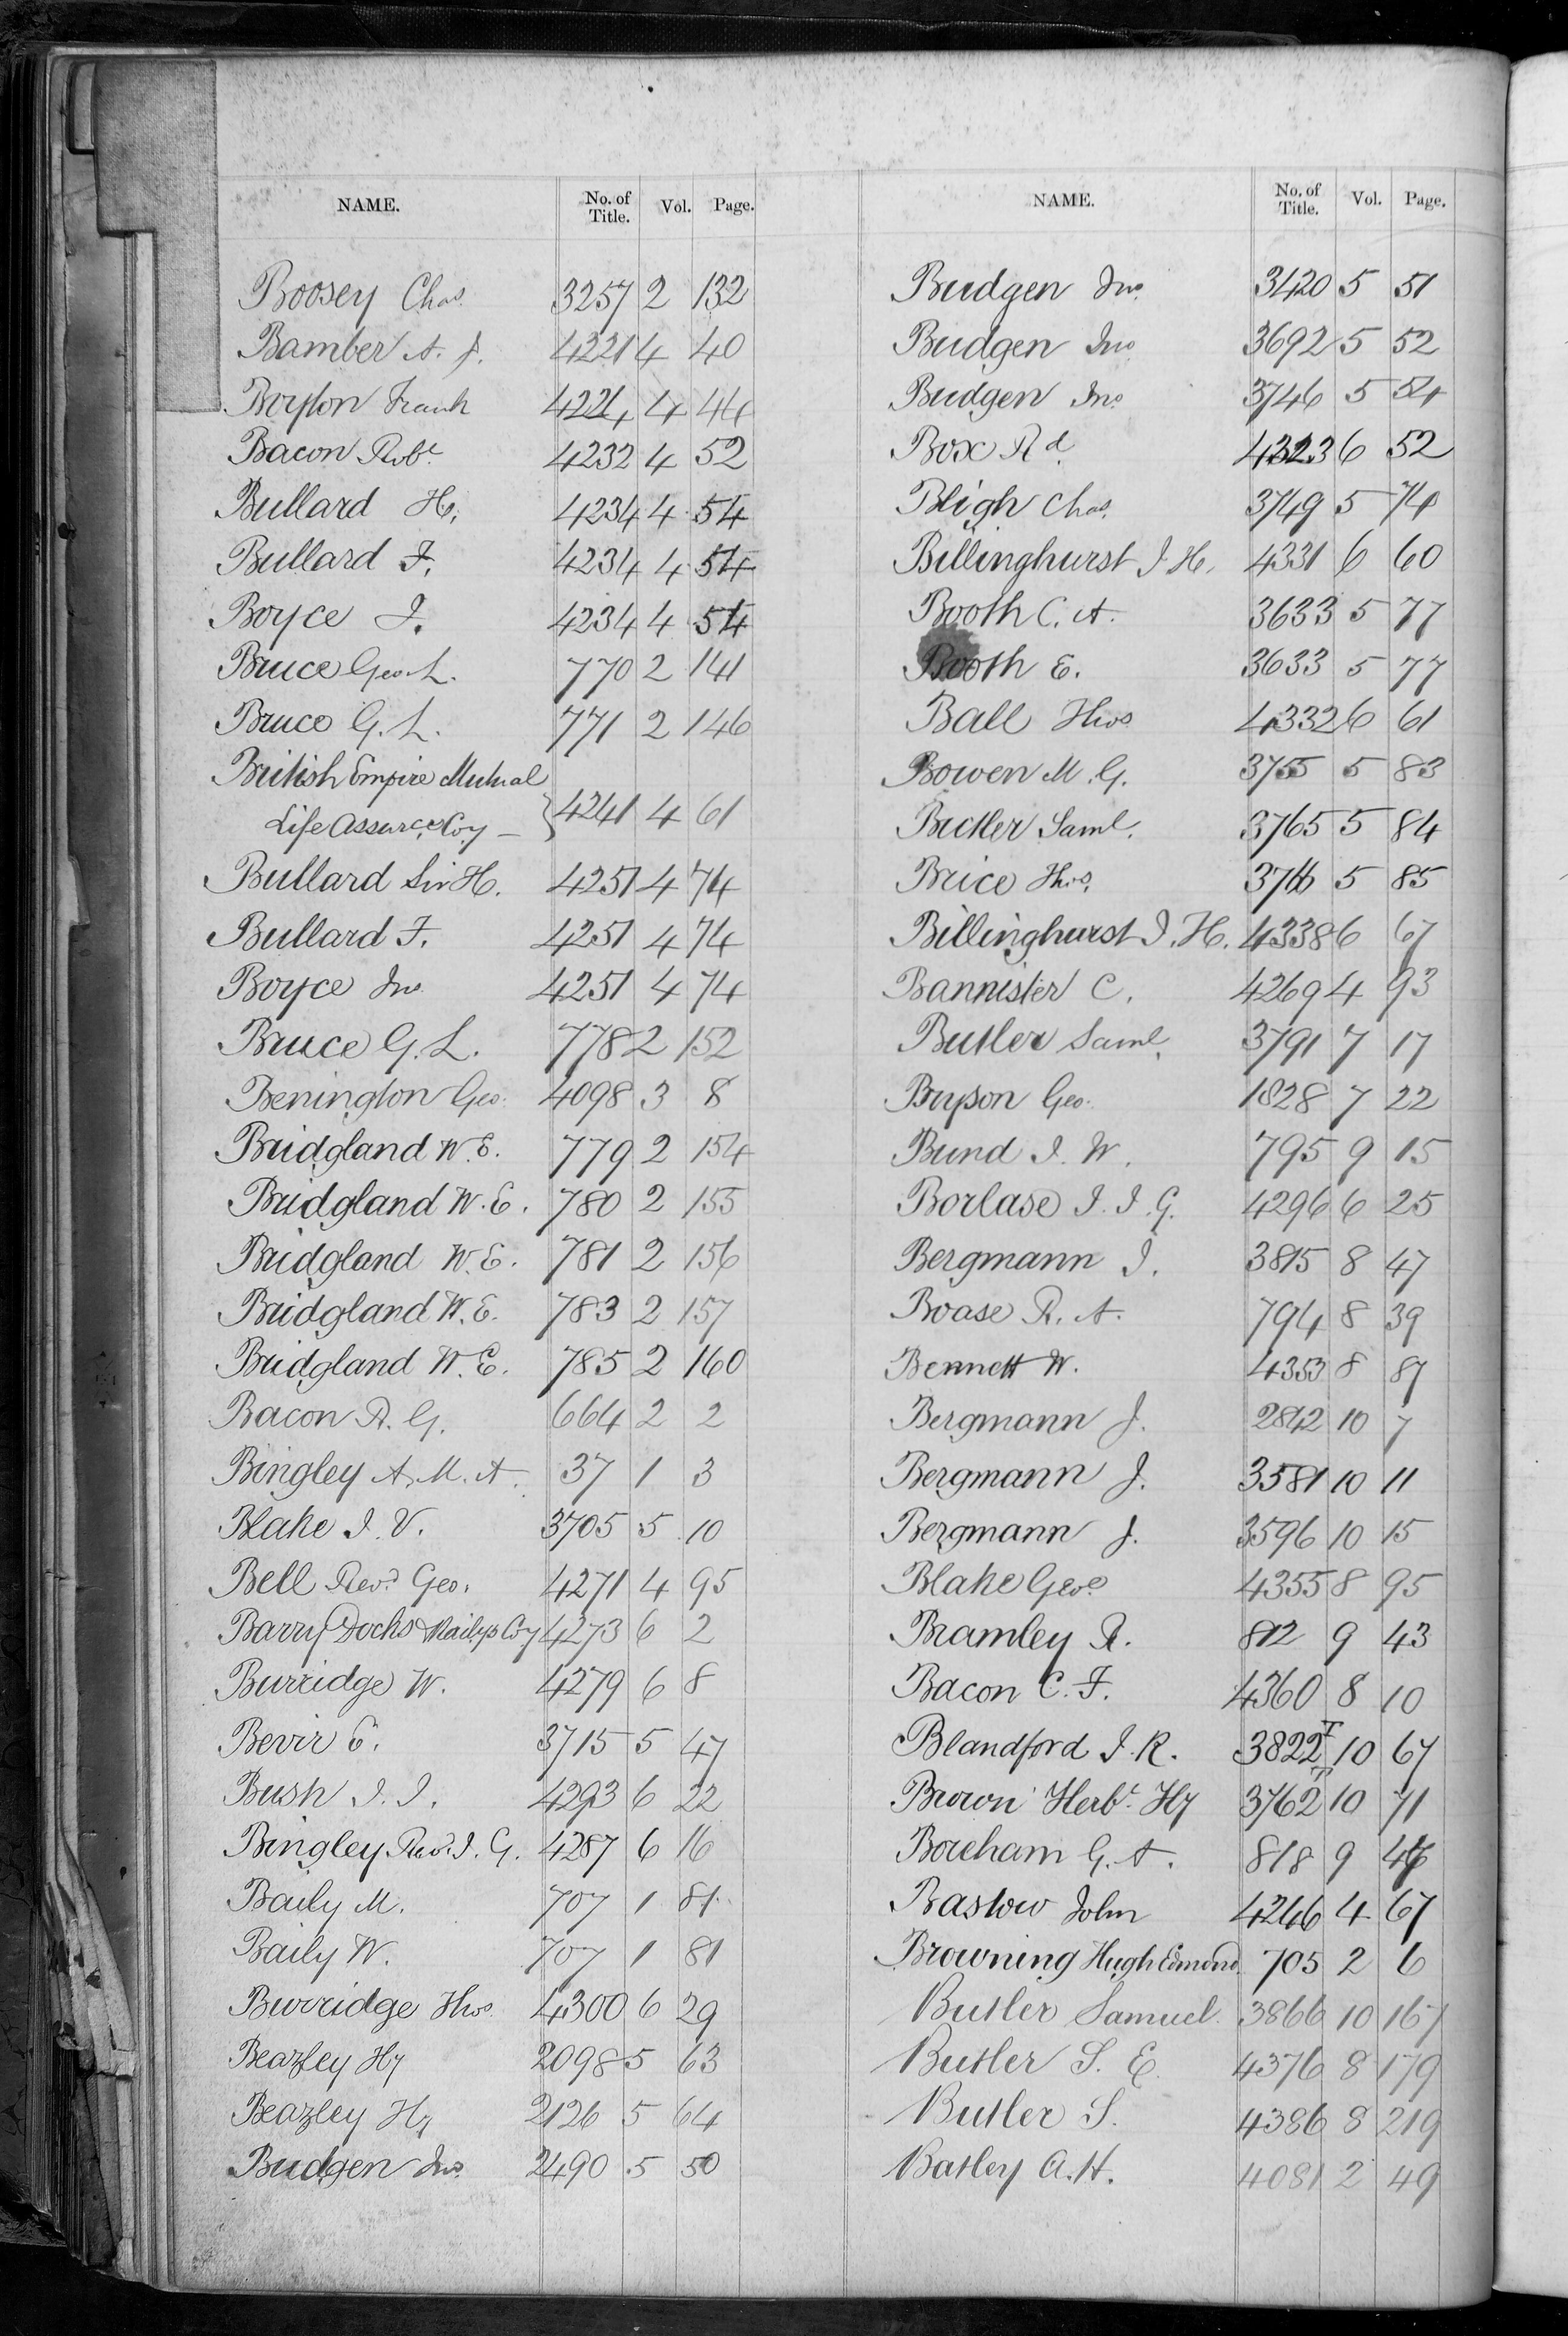 NAME. No. of Title. Vol. Page.
Boosey Chas. 3257 2 132
Bamber A. J. 4221 4 40
Boyton Frank 4224 4 44
Bacon Robt. 4232 4 52
Bullard H. 4234 4 54
Bullard F. 4234 4 54
Boyce J. 4234 4 54
Bruce Geo. L. 770 2 141
Bruce G. L. 771 2 146
British Empire Mutual
Life Assurce Coy — } 4241 4 61
Bullard Sir H. 4251 4 74
Bullard F. 4251 4 74
Boyce Jno 4251 4 74
Bruce G. L. 778 2 152
Benington Geo. 4098 3 8
Bridgland W. E. 779 2 154
Bridgland W. E. 780 2 155
Bridgland W. E. 781 2 156
Bridgland W. E. 783 2 157
Bridgland W. E. 785 2 160
Bacon R. G. 664 2 2
Bingley A. M. A. 37 1 3
Blake J. V. 3705 5 10
Bell Revd. Geo. 4271 4 95
Barry Docks & Railys Coy 4273 6 2
Burridge W. 4279 6 8
Bevir E. 3715 5 47
Bush J. J. 4293 6 22
Bingley Revd. J. G. 4287 6 16
Baily M. 707 1 81
Baily W. 707 1 81
Burridge Thos 4300 6 29
Beazley Hy 2098 5 63
Beazley Hy 2126 5 64
Budgen Jno. 2490 5 50
NAME. No. of Title. Vol. Page.
Budgen Jno. 3420 5 51
Budgen Jno 3692 5 52
Budgen Jno. 3746 5 54
Box Rd. 4323 6 52
Bligh Chas. 3749 5 74
Billinghurst J. H. 4331 6 60
Booth C. A. 3633 5 77
Booth E. 3633 5 77
Ball Thos 4332 6 61
Bowen M. G. 3755 5 83
Butler Saml. 3765 5 84
Brice Thos. 5 85
Billinghurst J. H. 4338 6 67
Bannister C. 4269 4 93
Butler Saml. 3791 7 17
Bryson Geo. 1828 7 22
Bund J. W. 795 9 15
Borlase J. J. G. 4296 6 25
Bergmann J. 3815 8 47
Boase R. A. 794 8 39
Bennett W. 4353 8 87
Bergmann J. 2842 10 7
Bergmann J. 3581 10 11
Bergmann J. 3596 10 15
Blake Geoe. 4355 8 95
Bramley R. 812 9 43
Bacon C. F. 4360 8 10
Blandford J. R. 3822 I 10 67
Brown Herbt. Hy 3762 10 71
Boreham G. A. 818 9
Bastow John 4246 4 67
Browning Hugh Edmond. 705 2 6
Butler Samuel. 3866 10 167
Butler S. E. 4376 8 179
Butler S. 4386 8 219
Batley A. H. 4081 2 49